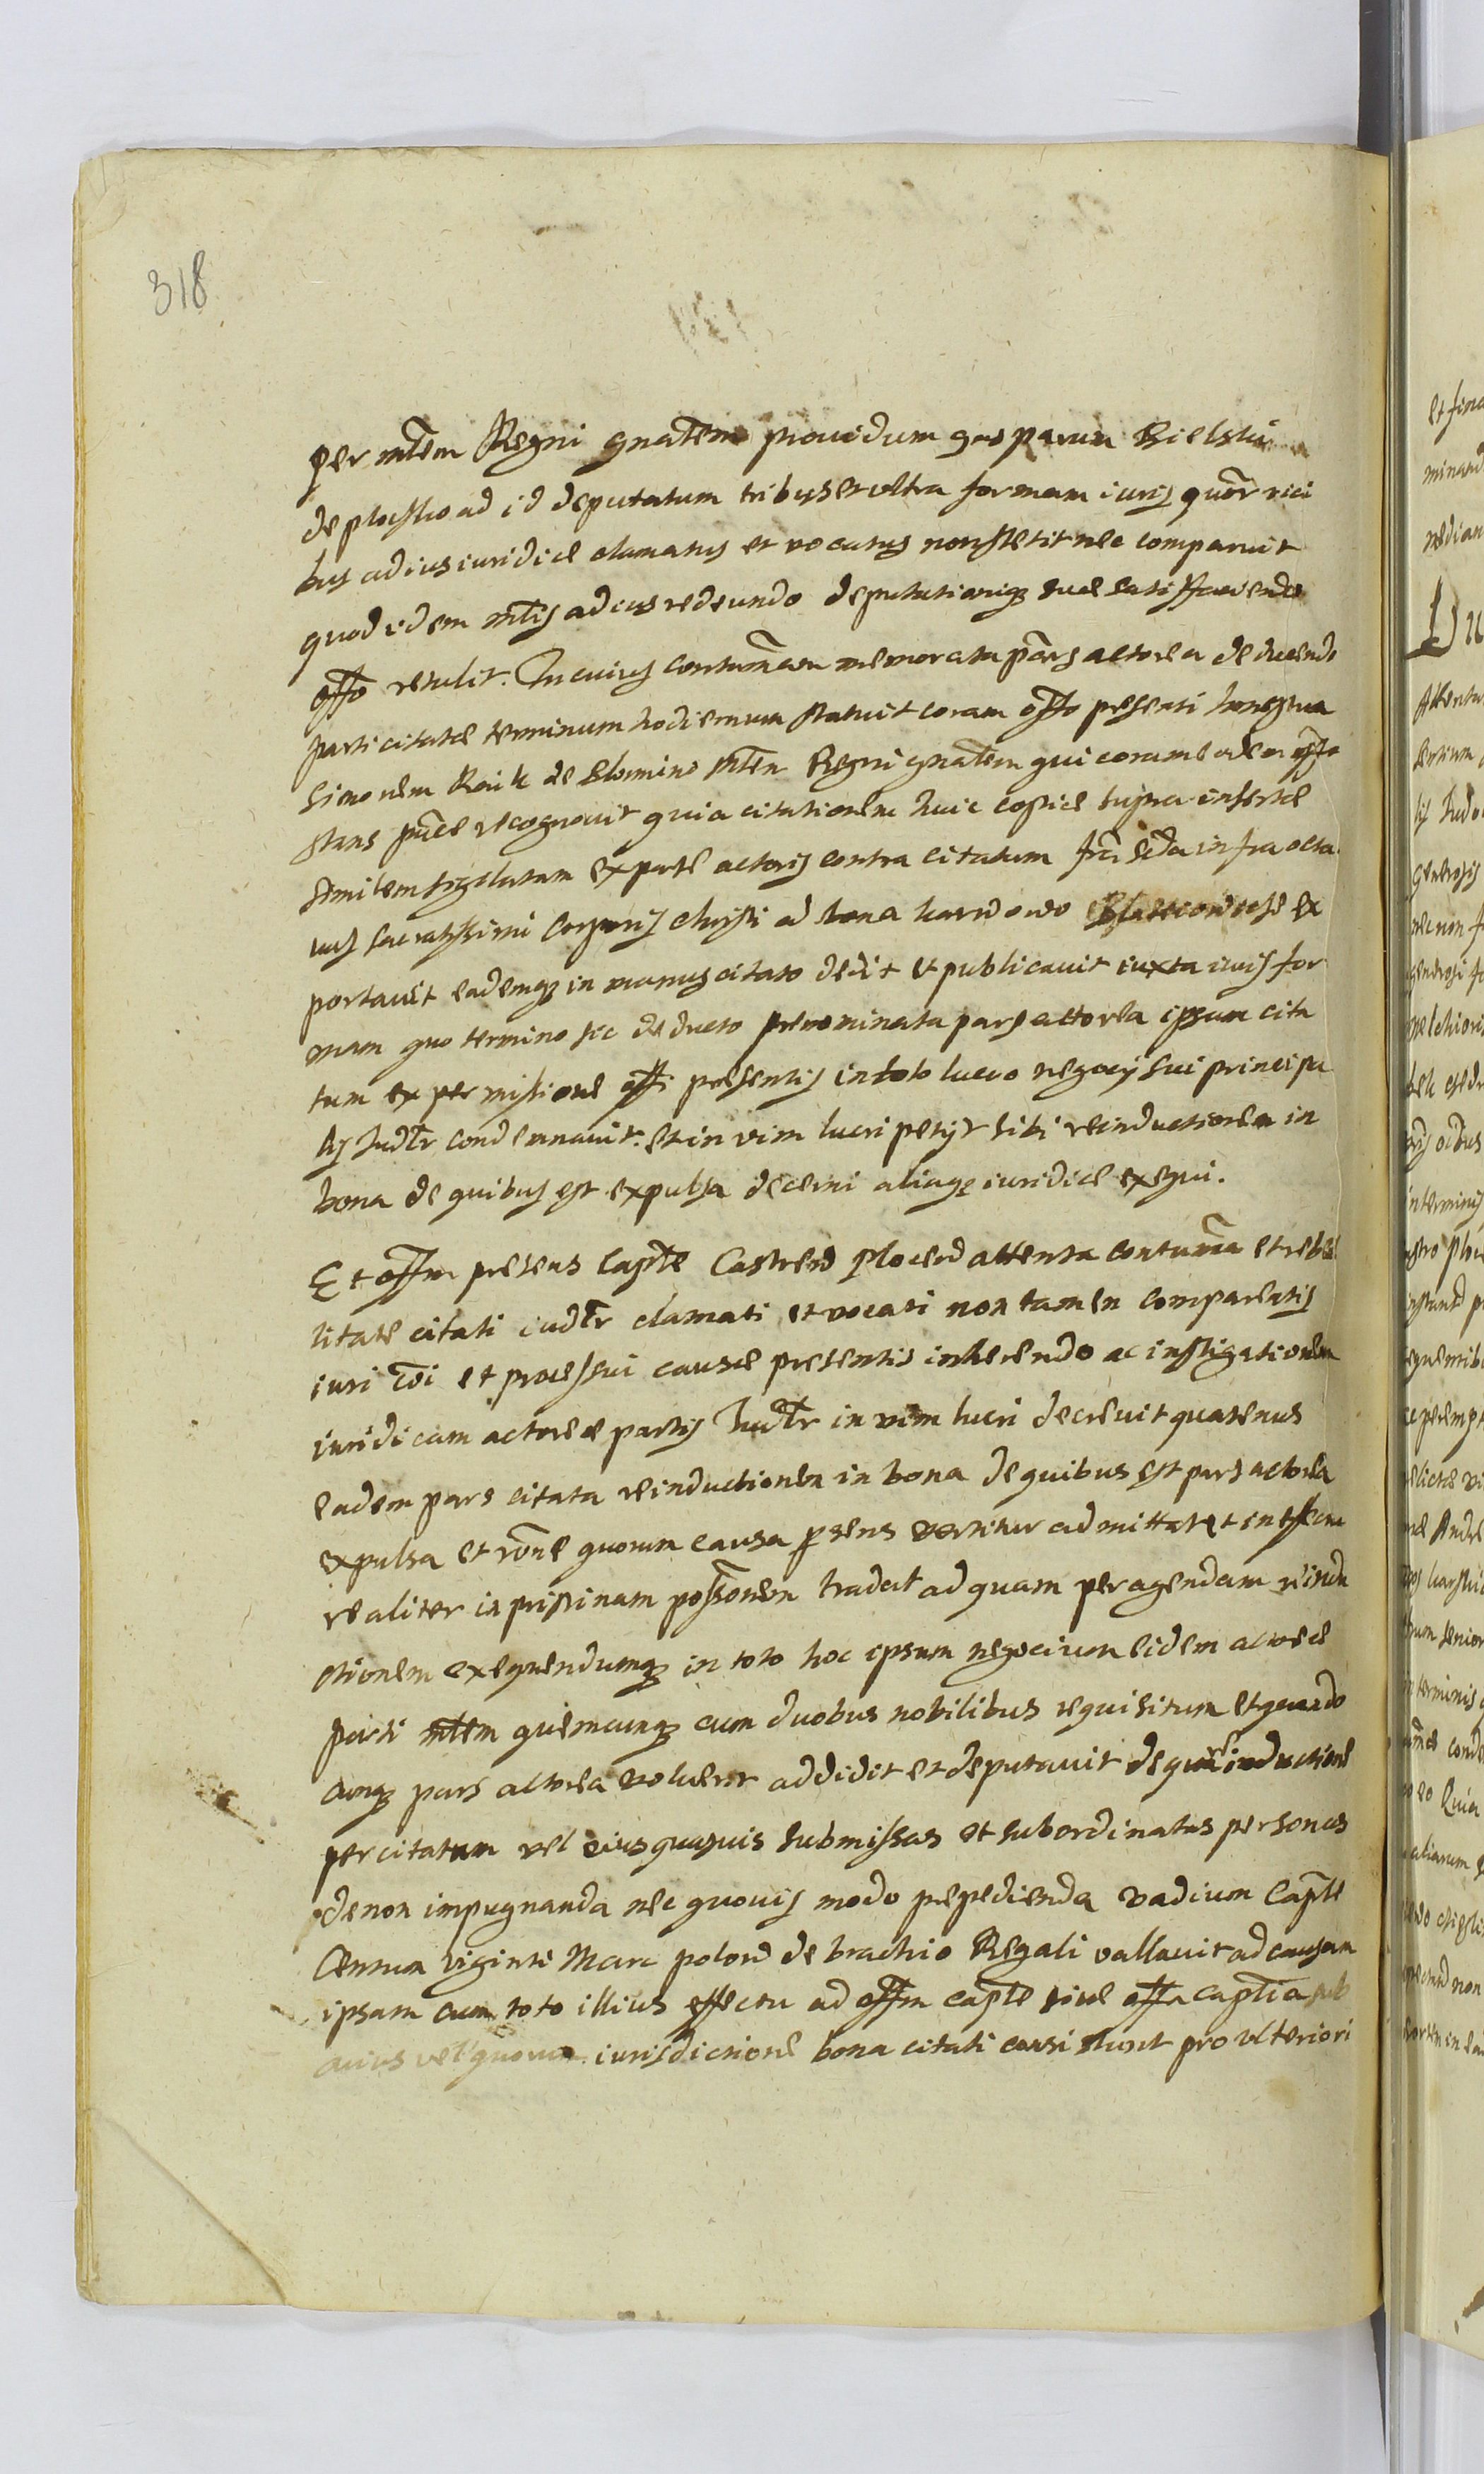 318
per mtem Regni gnatem prouidum gasparum Bielski
de plocsko ad id deputatum tribus et vltra formam iuris quor vici
bus ad ius iuridice clamatus et vocatus non stetit nec comparuit
quod idem mtis ad ius redeundo deputationiq suae satisfaciendo
offo retulit. In cuius contumam memorata pars actorea deducendo
parti citatae terminum hodiernum statuit coram offo presenti honestum
Simonem Raik de Slomino mtem Regni gnatem qui coram eodem offo
stans pnce recognouit quia citationem huic copiae supra insertae
similem sigilatam ex parte actoris contra citatum fria scda infra octa
uas sacratissimi Corporis Christi ad bona ex
portauit eademq in manus citato dedit et publicauit iuxta iuris for
mam quo termino sic deducto prenominata pars actorea ipsum cita
tum ex permissione offi presentis in toto lucro negocij sui principa
lis Iudtr condemnauit. et in vim lucri petijt sibi reinductionem in
bona de quibus est expulsa decerni aliaq iuridice exequi.
Et offm presens Capte Castren Plocen attenta contuma et rebel
litate citati iudtr clamati et vocati non tamen comparentis
iuri coi et processui causae presentis inherendo ac instigationem
iuridicam actoreae partis Iudtr in vim lucri decreuit quatenus
eadem pars citata reinductionem in bona de quibus est pars actorea
expulsa et rone quorum causa psens vertitur admittat et in effectu
realiter in pristinam possonem tradat ad quam peragendam reindu
ctionem exequendumq in toto hoc ipsum negocium eidem actoreae
parti mtem quemcunq cum duobus nobilibus requisitum et quando
cunq pars actorea voluerit addidit et deputauit de qua reinductione
per citatum vel eius quasuis submissas et subordinatas personas
de non impugnanda nec quouis modo prepedienda vadium Capte
Centum viginti Marc polon de brachio Regali vallauit ad causam
ipsam cum toto illius effectu ad offm capte siue offa captia sub
cuius vel quorum iurisdictione bona citati consistunt pro vlteriori